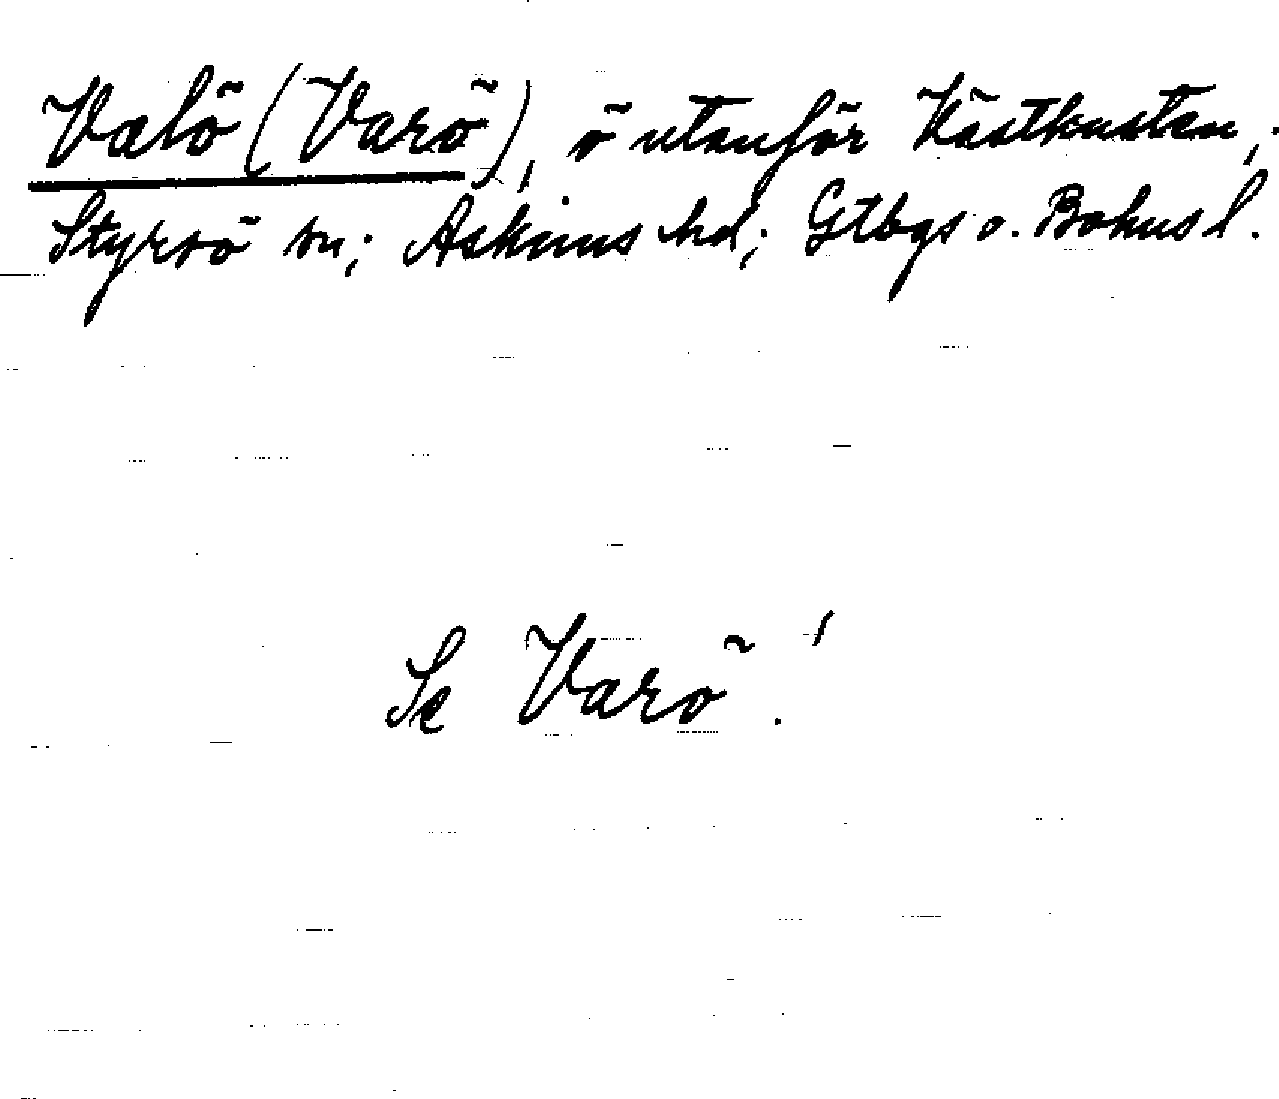 Valö (Varö), ö utanför Västkusten,
Styrsö sn; Askims hd; Gtbgs o. Bohusl.
Se Varö!